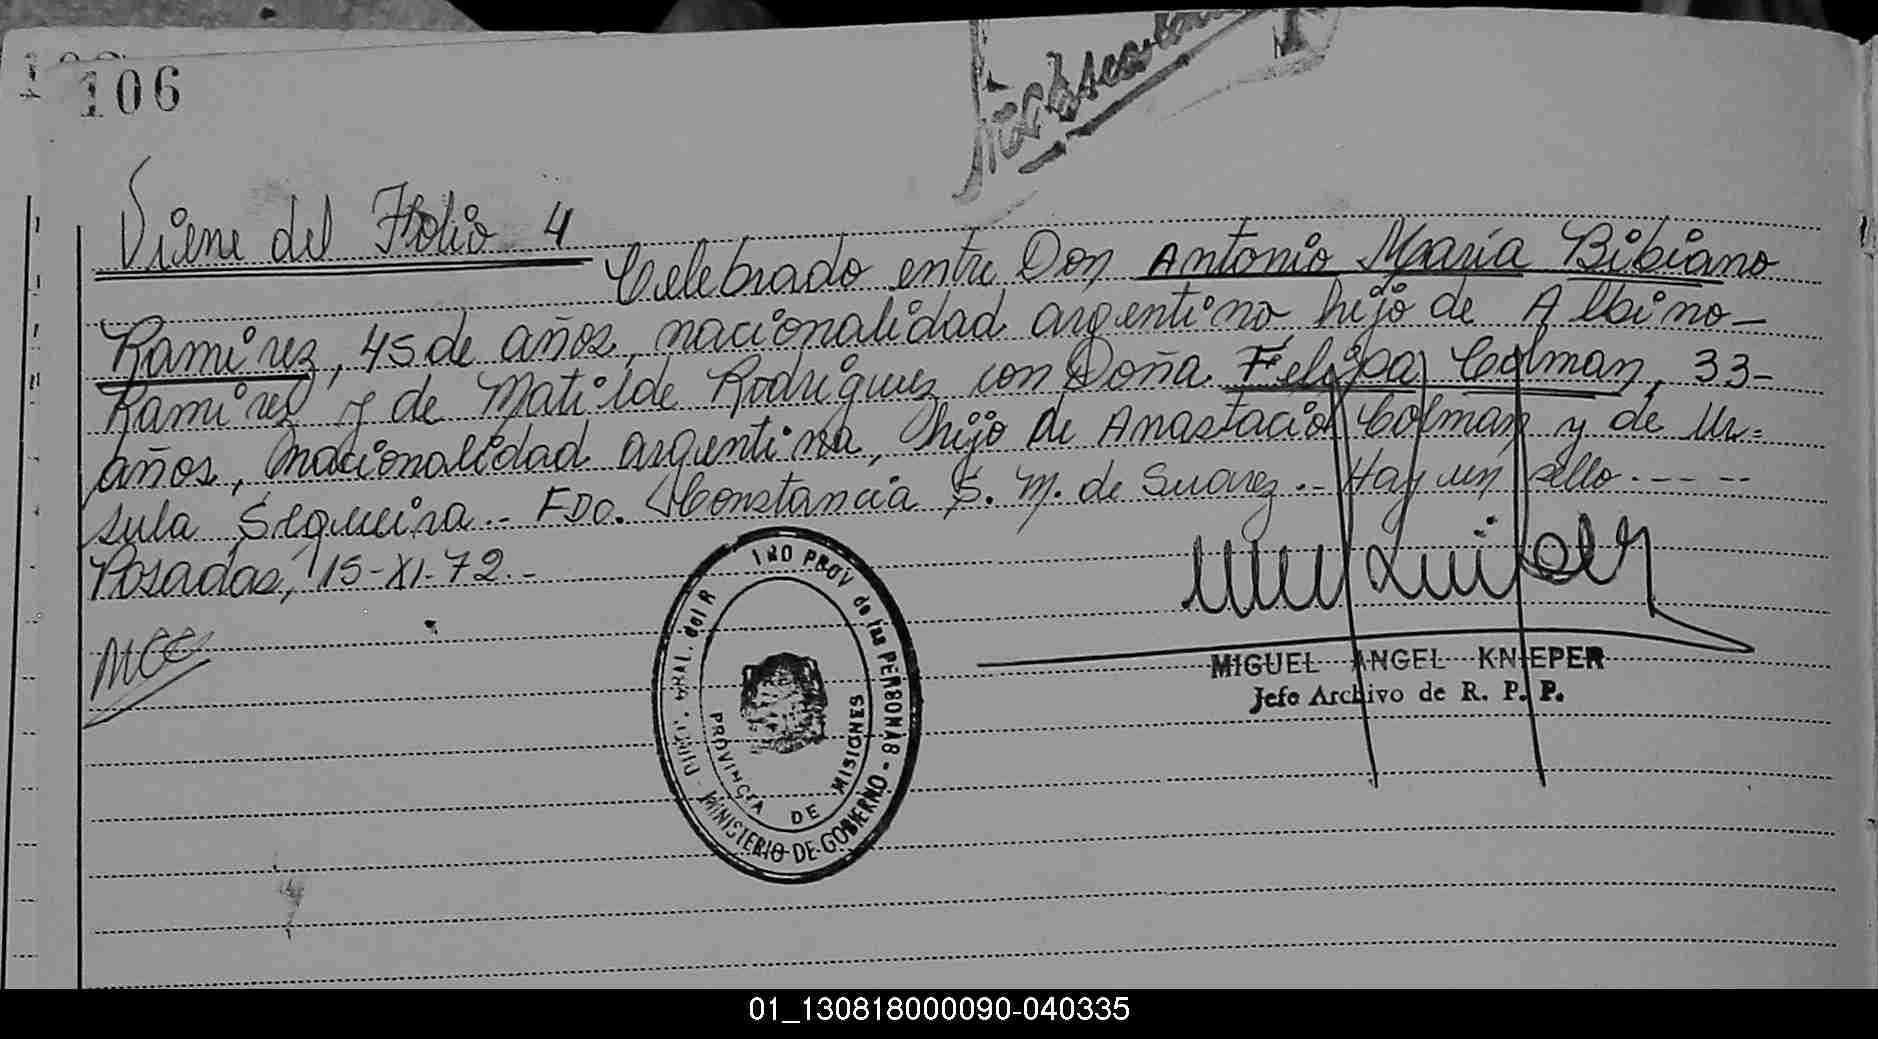 106
Viene del Folio 4
Celebrado entre Don Antonio María Bibiano
Ramirez, 45 de años, nacionalidad argentino hijo de Albino-
Ramirez y de Matilde Rodriguez con Doña Felipa Colman, 33-
años, nacionalidad argentina, hijo de Anastacio Colman y de Ur=
sula Sequeira.- FDO. Constancia S. M. de Suarez.- Hay un sello.----
Posadas, 15-XI-72.-
MCC
DIREC. GRAL. del R TRO PROV de las PERSONAS - MINISTERIO DE GOBIERNO -
PROVINCIA DE MISIONES
MIGUEL ANGEL KNIEPER
Jefe Archivo de R. P. P.
01_130818000090-040335